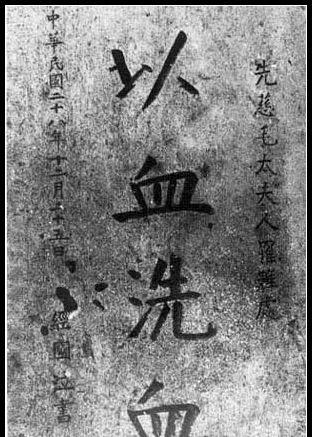 先慈毛太夫人罹難處
以血洗血
中華民國二十八年十二月十五日
泣書